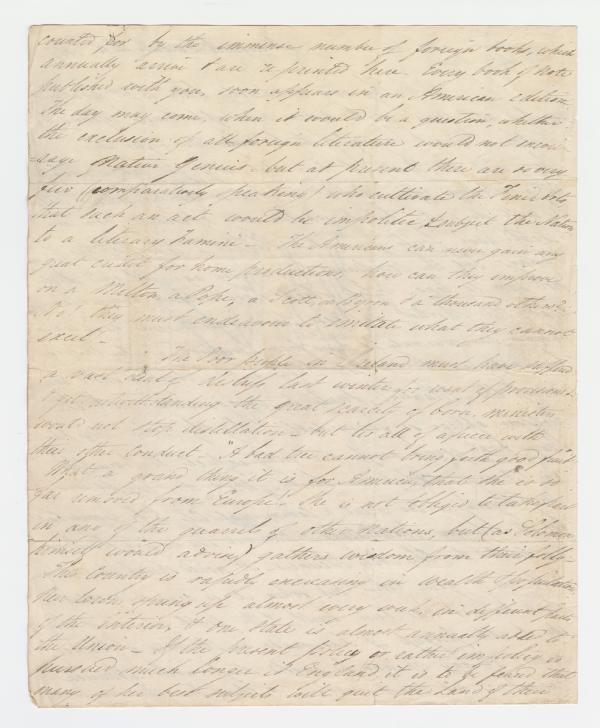 counted for by the immense number of foreign books, which
annually arrive & are reprinted here. Every book of Note
published with you, soon appears in an American edition.
The day may come, when it would be a question, whether
the exclusion of all foreign literature would not encou-
rage Native Genius. but at present there are so very
few (comparatively speaking) who cultivate the Fine Arts
that such an act would be impolitic & subject the Nation
to a literary Famine – The Americans can never gain any
great credit for home productions, how can they improve
on a Milton, a Pope, a Scott, a Byron & a thousand others?
No! they must endeavour to imitate what they cannot
excel –
The Poor people in Ireland must have suffered
a vast deal of distress last winter for want of provisions.
& yet notwithstanding the great scarcity of corn, ministers
would not stop distillation – but tis all of a piece with
their other conduct – "A bad tree cannot bring forth good fruit
What a grand thing it is for America, that she is so
far removed from Europe! She is not obliged to take part
in any of the quarrels of other Nations, but (as Solomon
himself would advise) gathers wisdom from their folly –
This Country is rapidly encreasing in wealth & population
New towns spring up almost every week in different parts
of the interior, & one State is almost annually added to
the Union – If the present policy or rather impolicy is
pursued much longer in England it is to be feared that
many of her best subjects will quit the Land of their